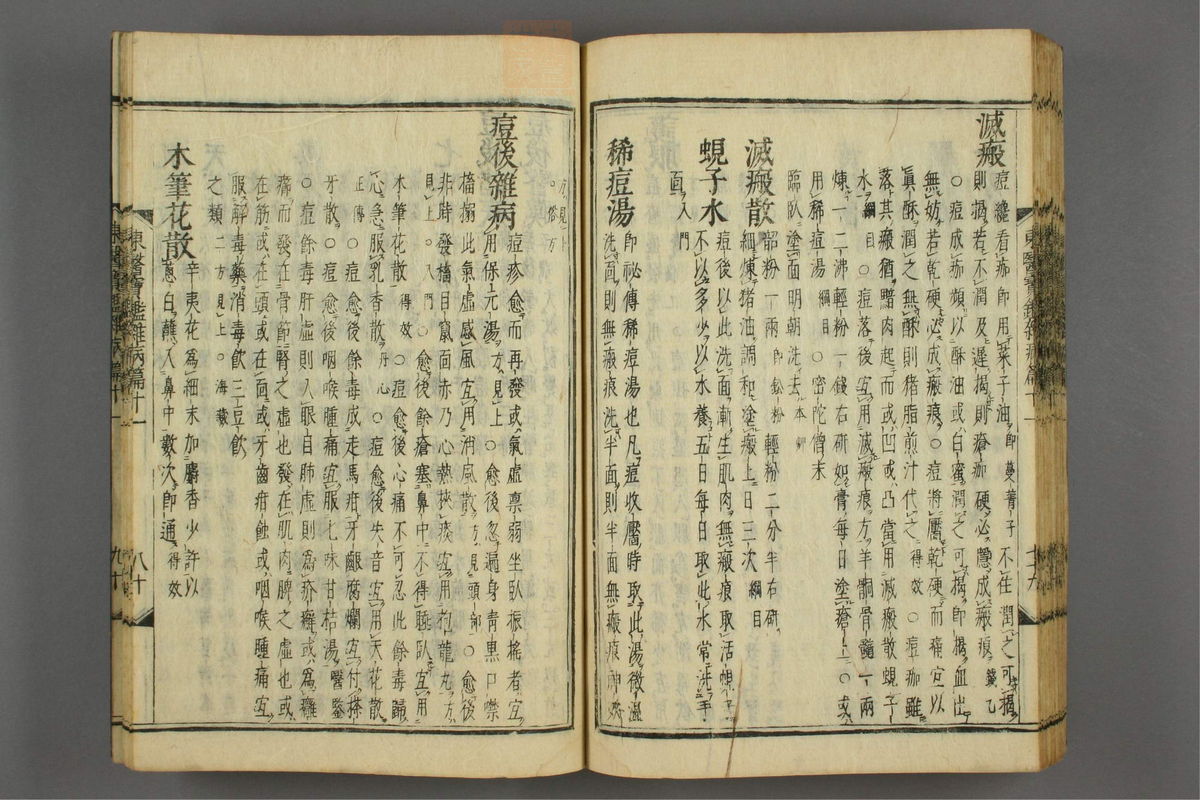 滅瘢
痘纔看痂卽用菜子油卽蔓菁子不住潤之可揭
則揭若不潤及遲揭則瘡痂硬必隱成瘢痕錢乙
○痘成痂頻以酥油或白蜜潤之可揭卽揭血出
無妨若乾硬必成瘢痕○痘將靨乾硬而痛宜以
眞酥潤之無酥則猪脂煎汁代之得效○痘痂雖
落其瘢猶黯肉起而或凹或凸當用滅瘢散蜆子
水綱目○痘落後宜用滅瘢痕方羊䯚骨髓一兩
煉一二沸輕粉一錢右硏如膏每日塗瘡上○或
用稀痘湯綱目○密陀僧末
臨臥塗面明朝洗去本朝
滅瘢散
韶粉一兩卽鈆粉輕粉二分半右硏
細煉猪油調和塗瘢上日三次綱目
蜆子水
痘後以此洗面漸生肌肉無瘢痕取活蜆子
不以多少以水養五日每日取此水常洗手
面入門
稀痘湯
卽祕傳稀痘湯也凡痘收靨時取此湯微溫
洗面則無瘢痕洗半面則半面無瘢痕神妙
方見上
○俗方
痘後雜病
痘疹愈而再發或氣虛禀弱坐臥振搖者宜
用保元湯方見上○愈後忽遍身靑黑口噤
搐搦此氣虛感風宜用消風散方見頭部○愈後
非時發搐目竄面赤乃心熱挾痰宜用抱龍丸方
見上○入門○愈後餘瘡塞鼻中不得睡臥宜用
木筆花散得效○痘愈後心痛不可忍此餘毒歸
心急服乳香散丹心○痘愈後失音宜用天花散
正傳○痘愈後咽喉腫痛宜服七味甘桔湯醫鑒
○痘愈後餘毒成走馬疳牙齦腐爛宜付搽
牙散○痘餘毒肝虛則入眼目肺虛則爲疥癬或爲癰
癤而發在骨節腎之虛也發在肌肉脾之虛也或
在筋或在頭或在面或牙齒疳蝕或咽喉腫痛宜
服解毒藥消毒飮三豆飮
之類二方見上○海藏
木筆花散
辛夷花爲細末加麝香少許以
葱白蘸入鼻中數次卽通得效
東醫寶鑑雜病篇十一
八十
九十